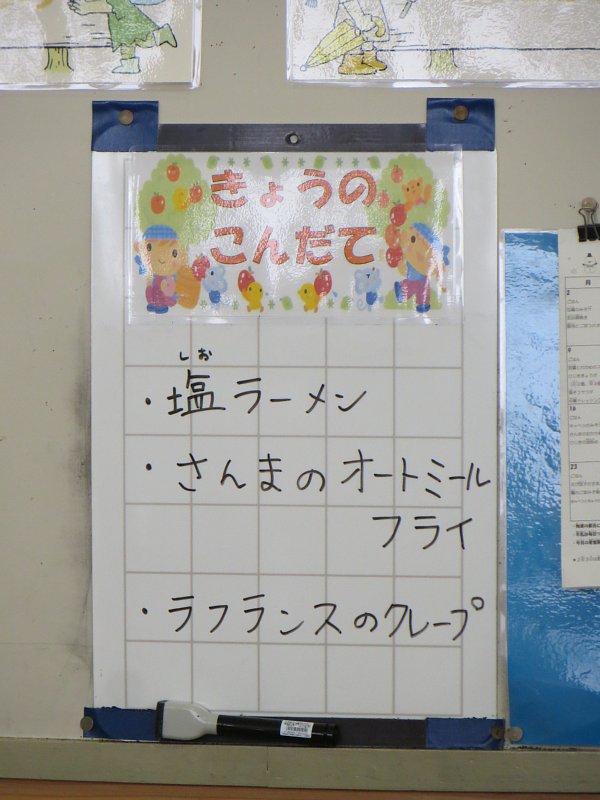 きょうの
こんだて
しお
・塩ラーメン
・さんまのオートミール
フライ
・ラフランスのクレープ
月
2
9
16
23